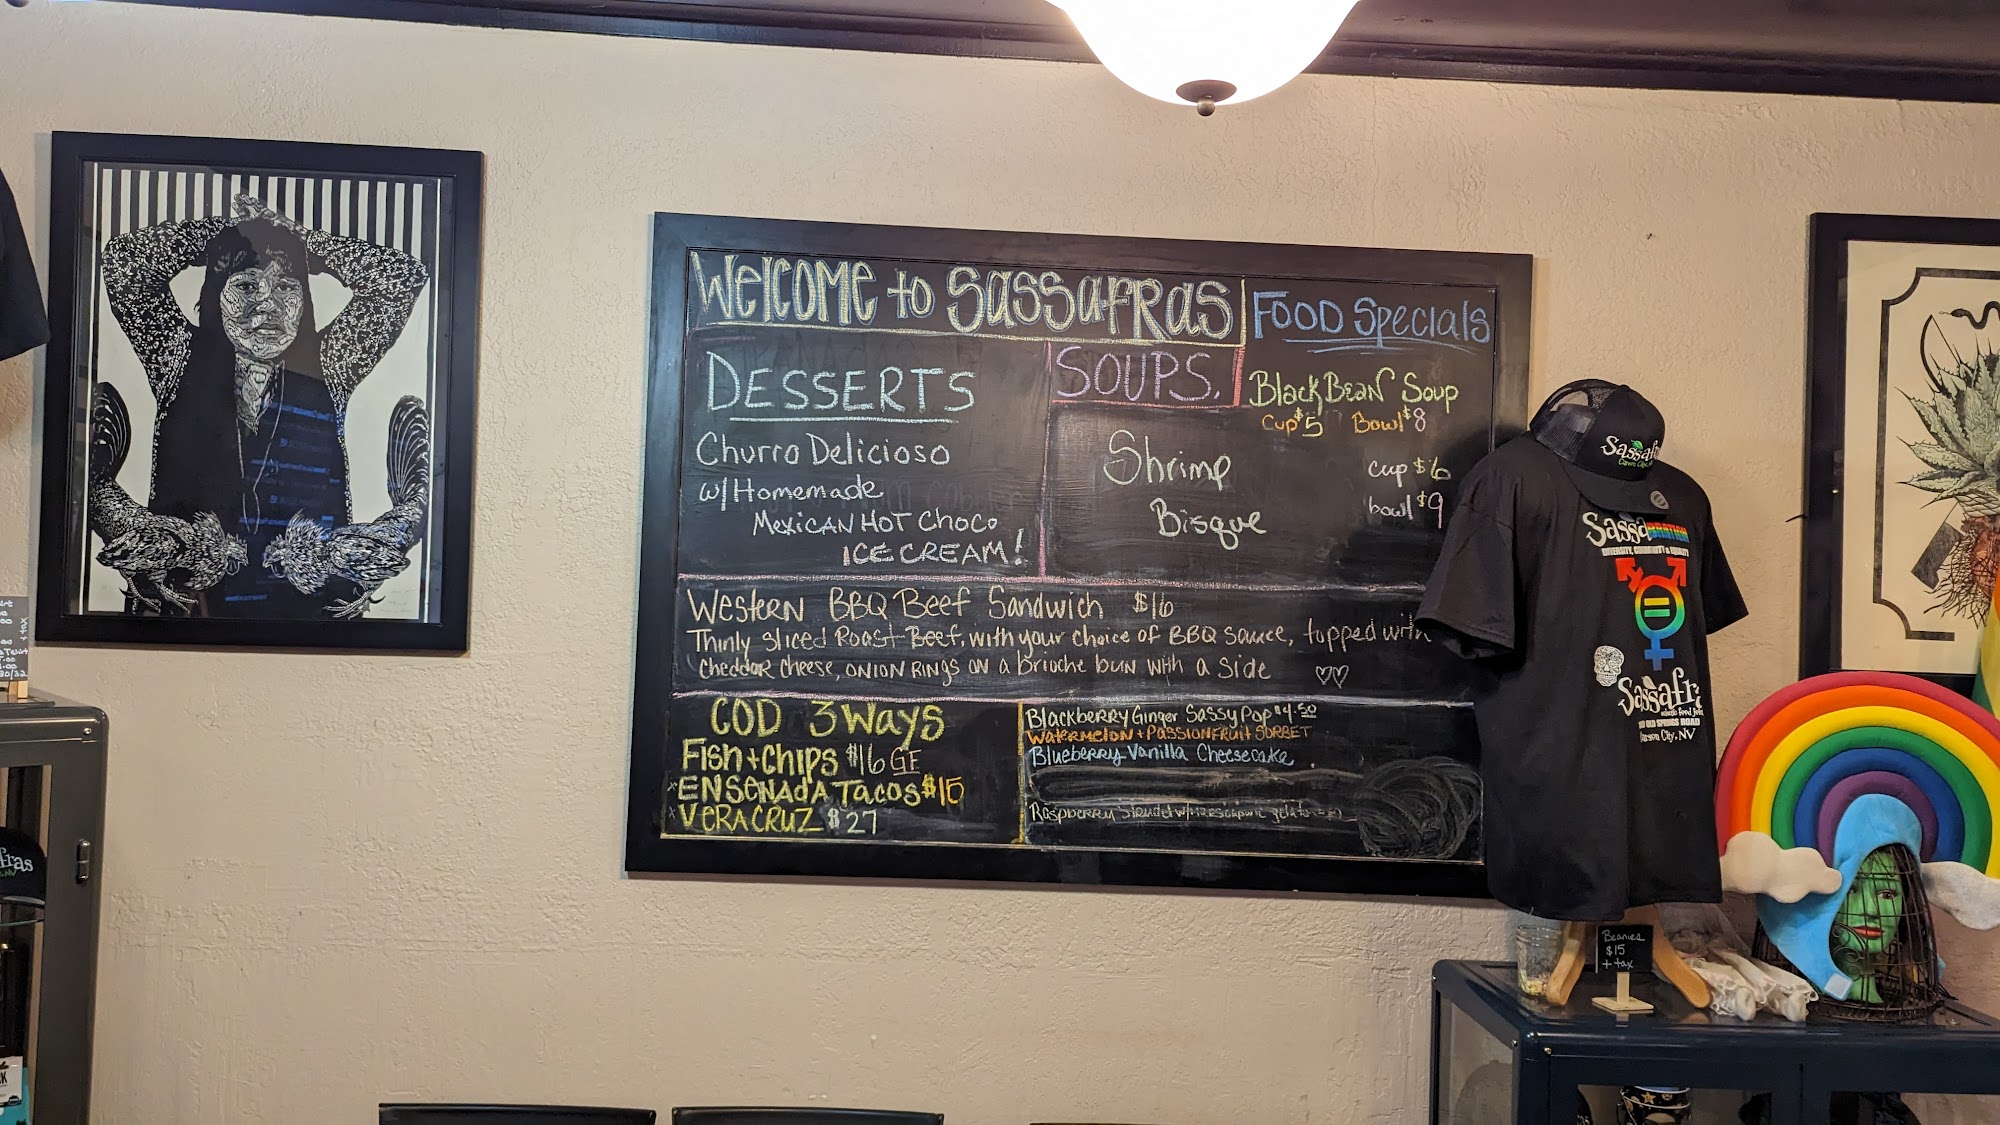 WELCOME to SASSAFRAS
FOOD Specials
DESSERTS
Churro Delicioso
w/ Homemade
MEXICAN HOT CHOCO
ICE CREAM!
SOUPS.
Shrimp
Bisque
Black BEAN Soup
Cup $5 Bowl $8
cup $6
bowl $9
WESTERN BBQ Beef Sandwich $16
Thinly sliced Roast Beef, with your choice of BBQ sauce, topped with
cheddar cheese, ONION RINGS ON a brioche bun with a side
COD 3 WAYS
FISH + CHIPS $16 GF
ENSENADA TACOS $15
VERACRUZ $27
Blackberry Ginger Sassy Pop $4.50
WATERMELON + PASSIONFRUIT SORBET
Blueberry Vanilla Cheesecake
Raspberry
Sassafr
Carson City, NV
SASSABRATION
DIVERSITY, COMMUNITY & EQUALITY
Sassafra
OLD SPRINGS ROAD
Carson City, NV
Beanies
$15
+ tax
fras
+ tax